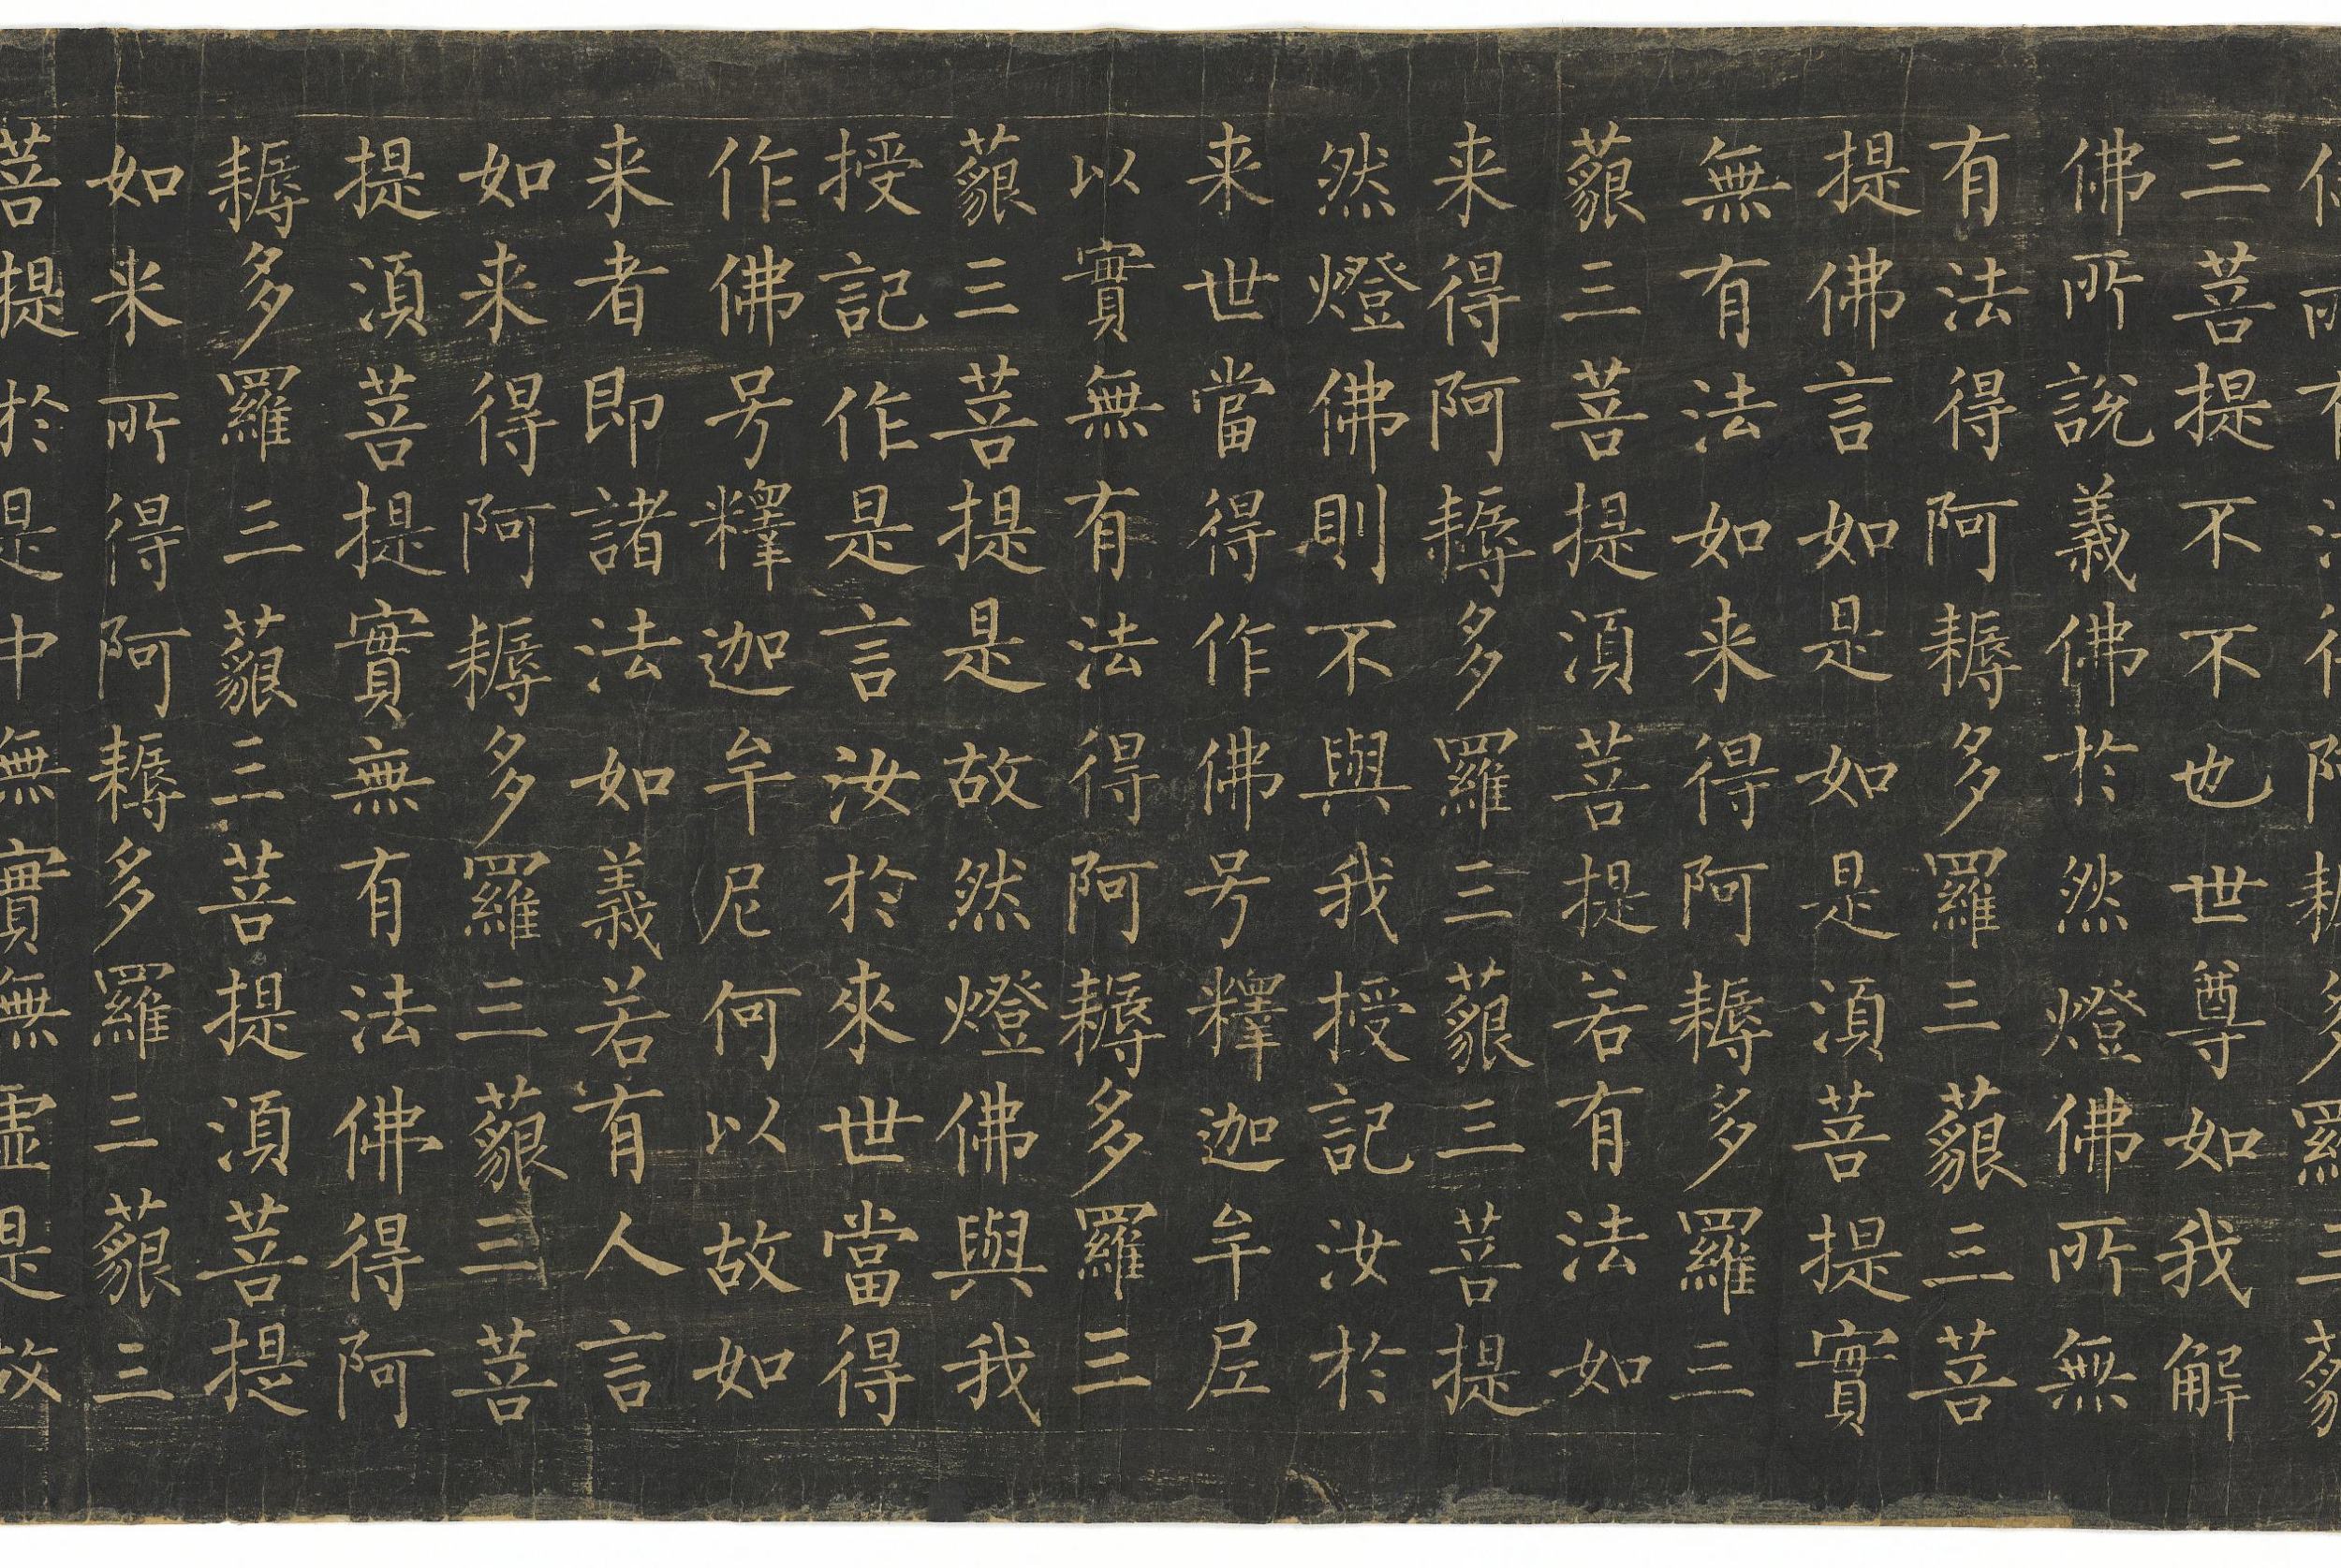 佛所有法得阿耨多羅三藐
三菩提不不也世尊如我解
佛所說義佛於然燈佛所無
有法得阿耨多羅三藐三菩
提佛言如是如是湏菩提實
無有法如来得阿耨多羅三
藐三菩提湏菩提若有法如
来得阿耨多羅三藐三菩提
然燈佛則不與我授記汝於
来世當得作佛号釋迦牟尼
以實無有法得阿耨多羅三
藐三菩提是故然燈佛與我
授記作是言汝於來世當得
作佛号釋迦牟尼何以故如
来者即諸法如義若有人言
如来得阿耨多羅三藐三菩
提湏菩提實無有法佛得阿
耨多羅三藐三菩提湏菩提
如来所得阿耨多羅三藐三
菩提於是中無實無虛是故